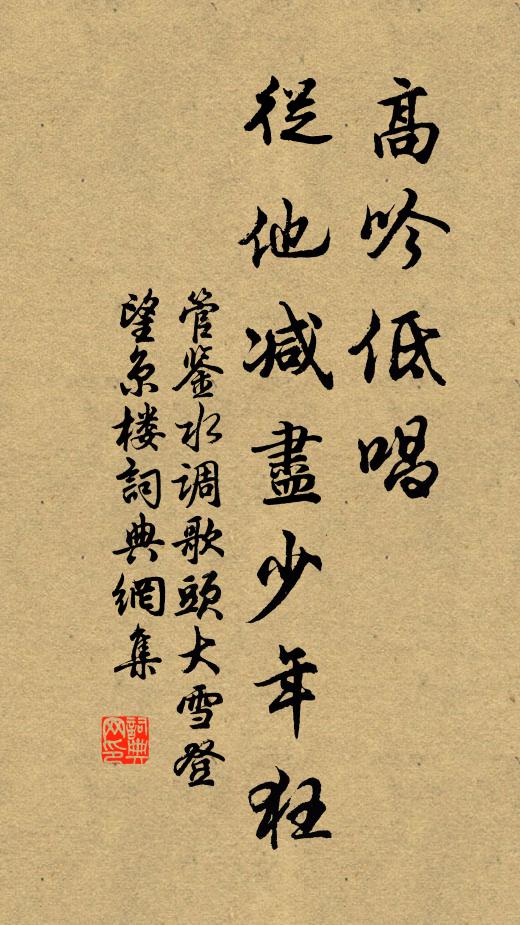 高吟低唱
從他減盡少年狂
管鉴水调歌頭大雪登
望京楼詞典網集
詞典
网印